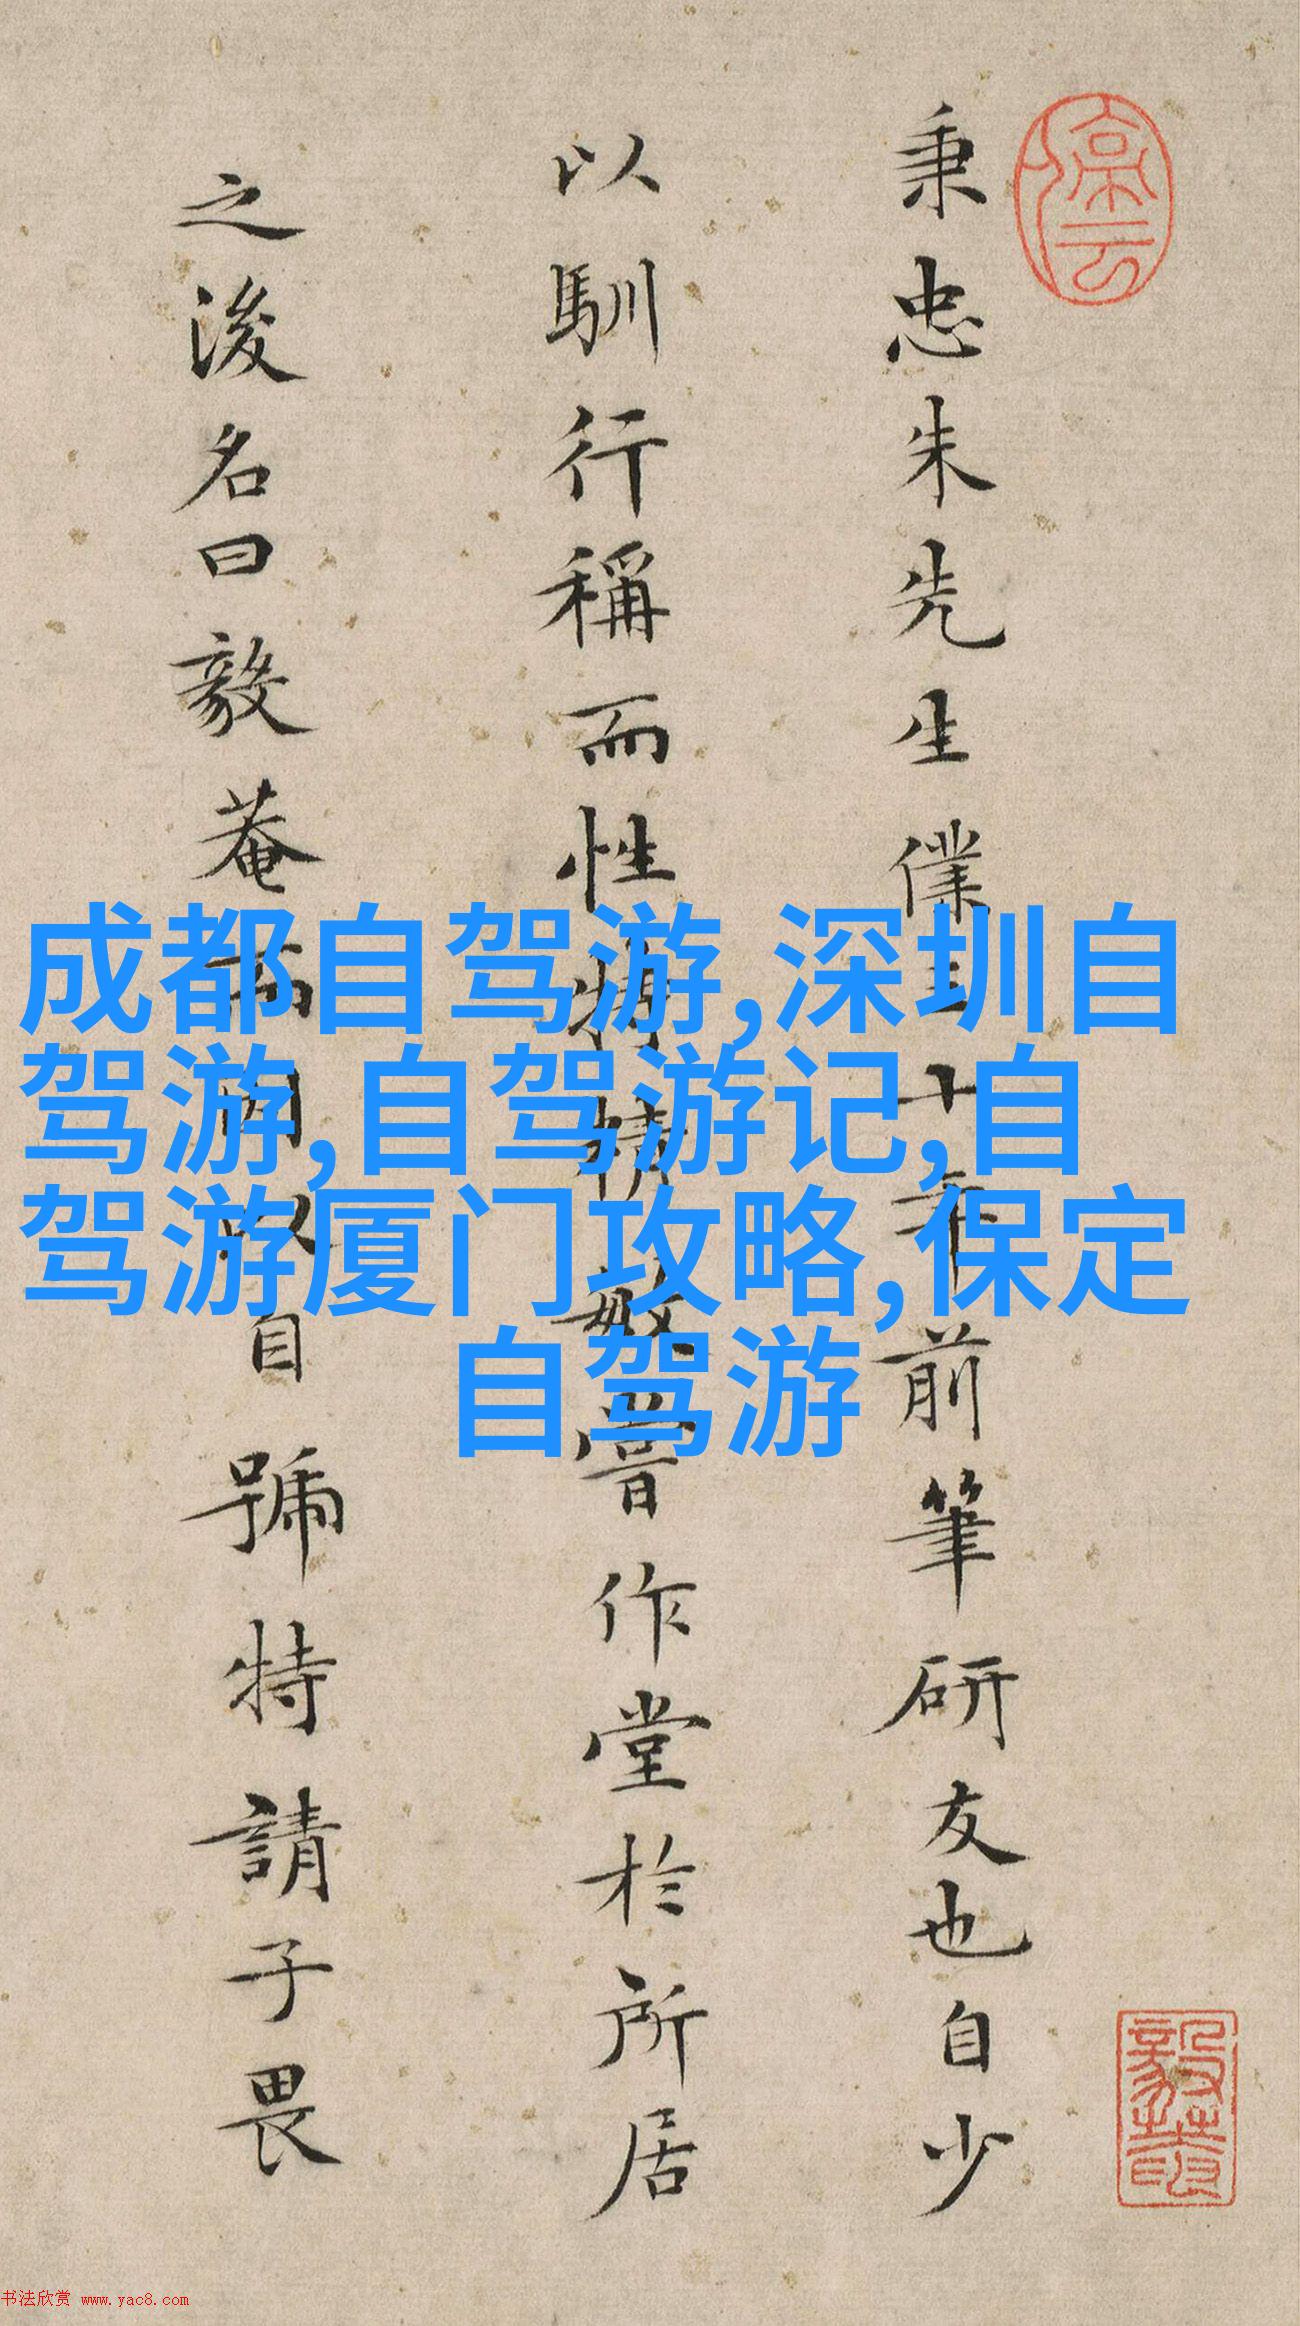 秉忠朱先生僕三十年前筆研友也自少
以馴行稱而性特精敏嘗作堂於所居
之後名曰毅菴而因以自號特請子畏
成都自驾游,深圳自
驾游,自驾游记,自
驾游厦门攻略,保定
自驾游
书法欣赏 www.yac8.com